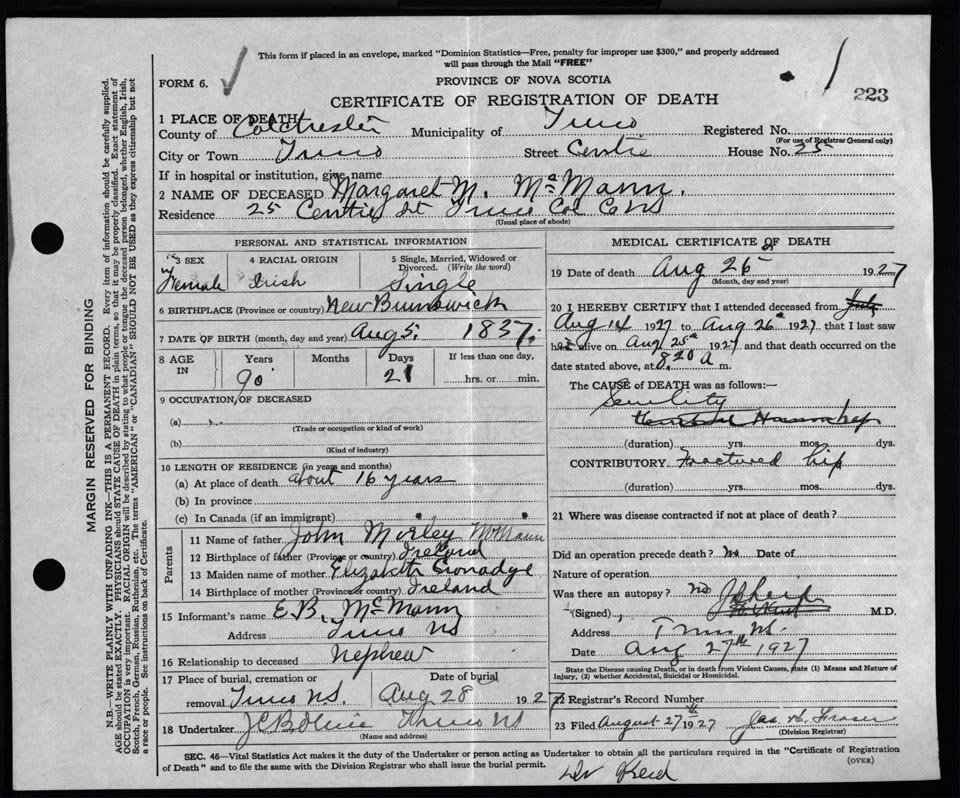 This form if placed in an envelope, marked "Dominion Statistics—Free, penalty for improper use $300," and properly addressed
will pass through the Mail "FREE"
FORM 6.
PROVINCE OF NOVA SCOTIA
223
CERTIFICATE OF REGISTRATION OF DEATH
1 PLACE OF DEATH
County of Colchester Municipality of Truro Registered No.
(For use of Registrar General only)
City or Town Truro Street House No. 25
If in hospital or institution, give name
2 NAME OF DECEASED Margaret M. McMann.
Residence 25 St Truro Col Co NS
(Usual place of abode)
PERSONAL AND STATISTICAL INFORMATION
3 SEX Female
4 RACIAL ORIGIN Irish
5 Single, Married, Widowed or Divorced. (Write the word) Single
6 BIRTHPLACE (Province or country) New Brunswick
7 DATE OF BIRTH (month, day and year) Aug 5. 1837.
8 AGE IN Years Months Days If less than one day,
90 21 hrs. or min.
9 OCCUPATION OF DECEASED
(a)
(Trade or occupation or kind of work)
(b)
(Kind of industry)
10 LENGTH OF RESIDENCE (in years and months)
(a) At place of death about 16 years
(b) In province
(c) In Canada (if an immigrant)
Parents
11 Name of father John Morley McMann
12 Birthplace of father (Province or country) Ireland
13 Maiden name of mother Elizabeth
14 Birthplace of mother (Province or country) Ireland
15 Informant's name E.B. McMann
Address Truro NS
16 Relationship to deceased Nephew
17 Place of burial, cremation or removal Truro N.S. Date of burial Aug 28 1927
18 Undertaker Truro NS
(Name and address)
MEDICAL CERTIFICATE OF DEATH
19 Date of death Aug 26 1927
(Month, day and year)
20 I HEREBY CERTIFY that I attended deceased from July
Aug 14 1927 to Aug 26th 1927 that I last saw
her alive on Aug 25th 1927 and that death occurred on the
date stated above, at 8.20 a m.
The CAUSE of DEATH was as follows:—
Senility
(duration) yrs. mos. dys.
CONTRIBUTORY Fractured hip
(duration) yrs. mos. dys.
21 Where was disease contracted if not at place of death?
Did an operation precede death? No Date of
Nature of operation
Was there an autopsy? no
(Signed) M.D.
Address Truro NS.
Date Aug 27th 1927
State the Disease causing Death, or in death from Violent Causes, state (1) Means and Nature of
Injury, (2) whether Accidental, Suicidal or Homicidal.
22 Registrar's Record Number
23 Filed August 27th 1927 Jas. H. Fraser
(Division Registrar)
SEC. 46—Vital Statistics Act makes it the duty of the Undertaker or person acting as Undertaker to obtain all the particulars required in the "Certificate of Registration
of Death" and to file the same with the Division Registrar who shall issue the burial permit.
(OVER)
Dr Reid
MARGIN RESERVED FOR BINDING
N.B.—WRITE PLAINLY WITH UNFADING INK—THIS IS A PERMANENT RECORD. Every item of information should be carefully supplied.
AGE should be stated EXACTLY. PHYSICIANS should STATE CAUSE OF DEATH in plain terms, so that it may be properly classified. Exact statement of
OCCUPATION is very important. RACIAL ORIGIN will be described by stating to what people or tongue the deceased person belonged, whether English, Irish,
Scotch, French, German, Russian, Ruthenian, etc. The terms "AMERICAN" or "CANADIAN" SHOULD NOT BE USED as they express citizenship but not
a race or people. See instructions on back of Certificate.